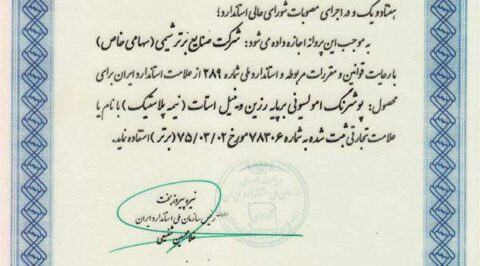 هفتاد و یک و در اجرای مصوبات شورای عالی استاندارد؛
به موجب این پروانه اجازه داده می‌شود: شرکت صنایع برتر شیمی (سهامی خاص)
با رعایت قوانین و مقررات مربوطه و استاندارد ملی شماره ۲۸۹ از علامت استاندارد ایران برای
محصول: پوشرنگ امولسیونی بر پایه رزین وینیل استات (نیمه پلاستیک) با نام یا
علامت تجارتی ثبت شده به شماره ۷۸۳۰۶ مورخ ۷۵/۰۳/۰۲ (برتر) استفاده نماید.
نیره پیروزبخت
رئیس سازمان ملی استاندارد ایران
سازمان ملی استاندارد ایران